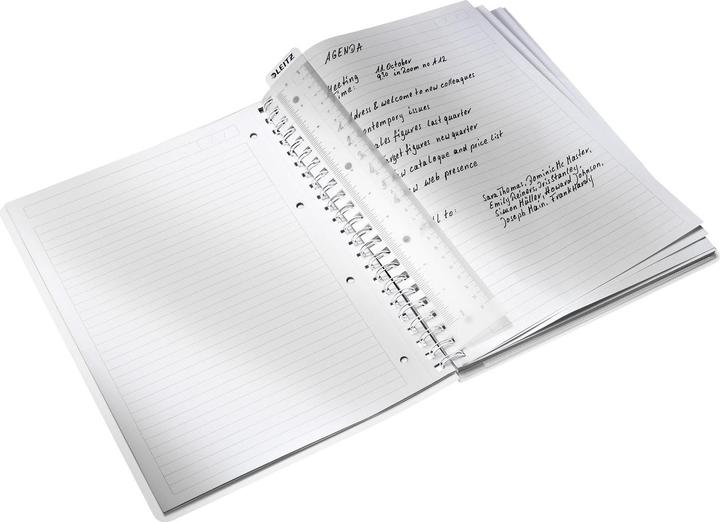 LEITZ
AGENDA
Meeting 11. October
Time: 930 in Room no A12
dress & welcome to new colleagues
ontempory issues
ales figures last quarter
rget figures new quarter
w catalogue and price list
w web presence
ll to: Sara Thomas, Dominic Mc Master,
Emily Reiners, Iris Stanley,
Simon Müller, Howard Johnson,
Joseph Main, Frank Hardy